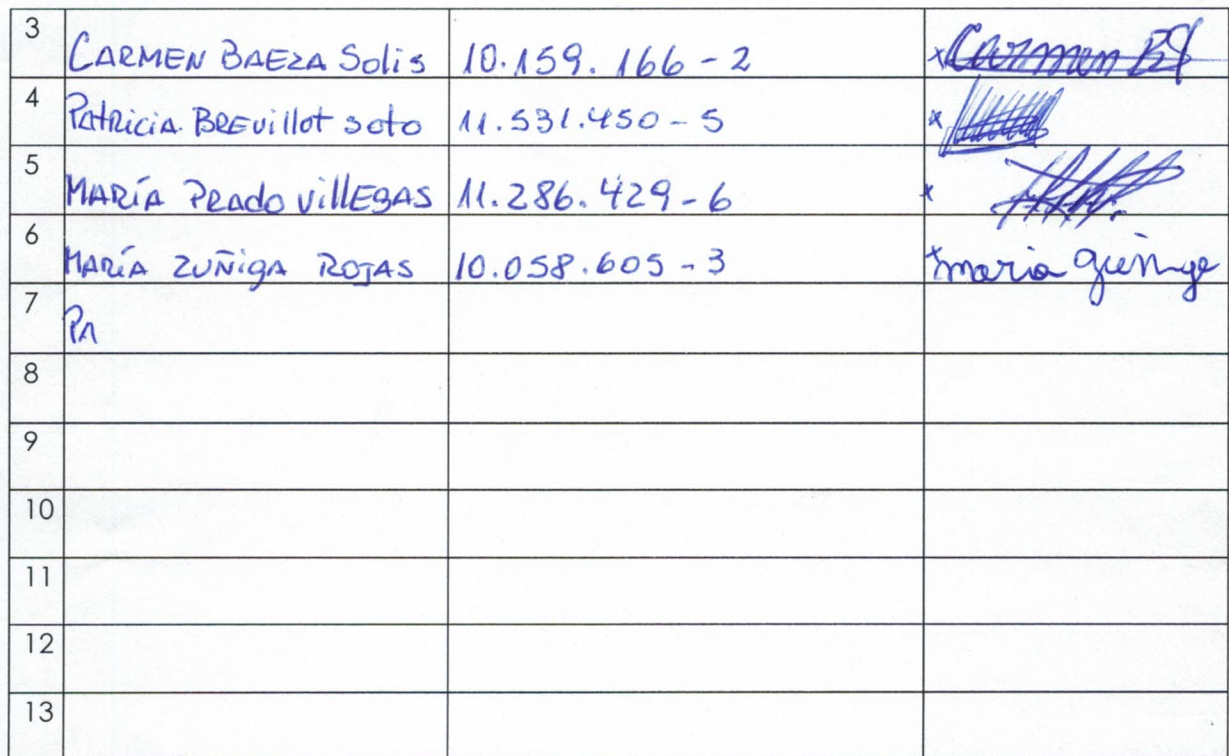 3 CARMEN BAEZA Solis 10.159.166-2 x Carmen BS
4 Patricia BREVillot soto 11.531.450-5 x
5 MARÍA PRADO VillEGAS 11.286.429-6 x
6 MARÍA ZUÑIGA ROJAS 10.058.605-3 x maria
7 PA
8
9
10
11
12
13